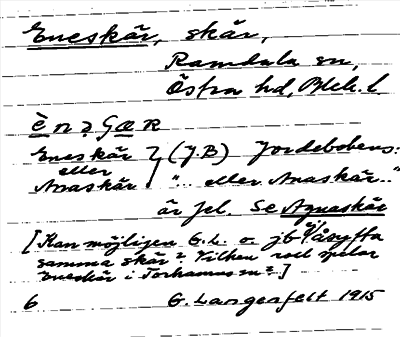 Eneskär, skär,
Ramdala sn,
Östra hd, Blek. l.
è n ə ʃ æ R
Eneskär } (J.B) Jordebokens:
eller
Anaskär "... eller Anaskär..."
är fel. Se Agnaskär
[Kan möjligen G.L. o. jb åsyfta
samma skär? Vilken roll spelar
Eneskär i Torhamns sn?]
6 G. Langenfelt 1915